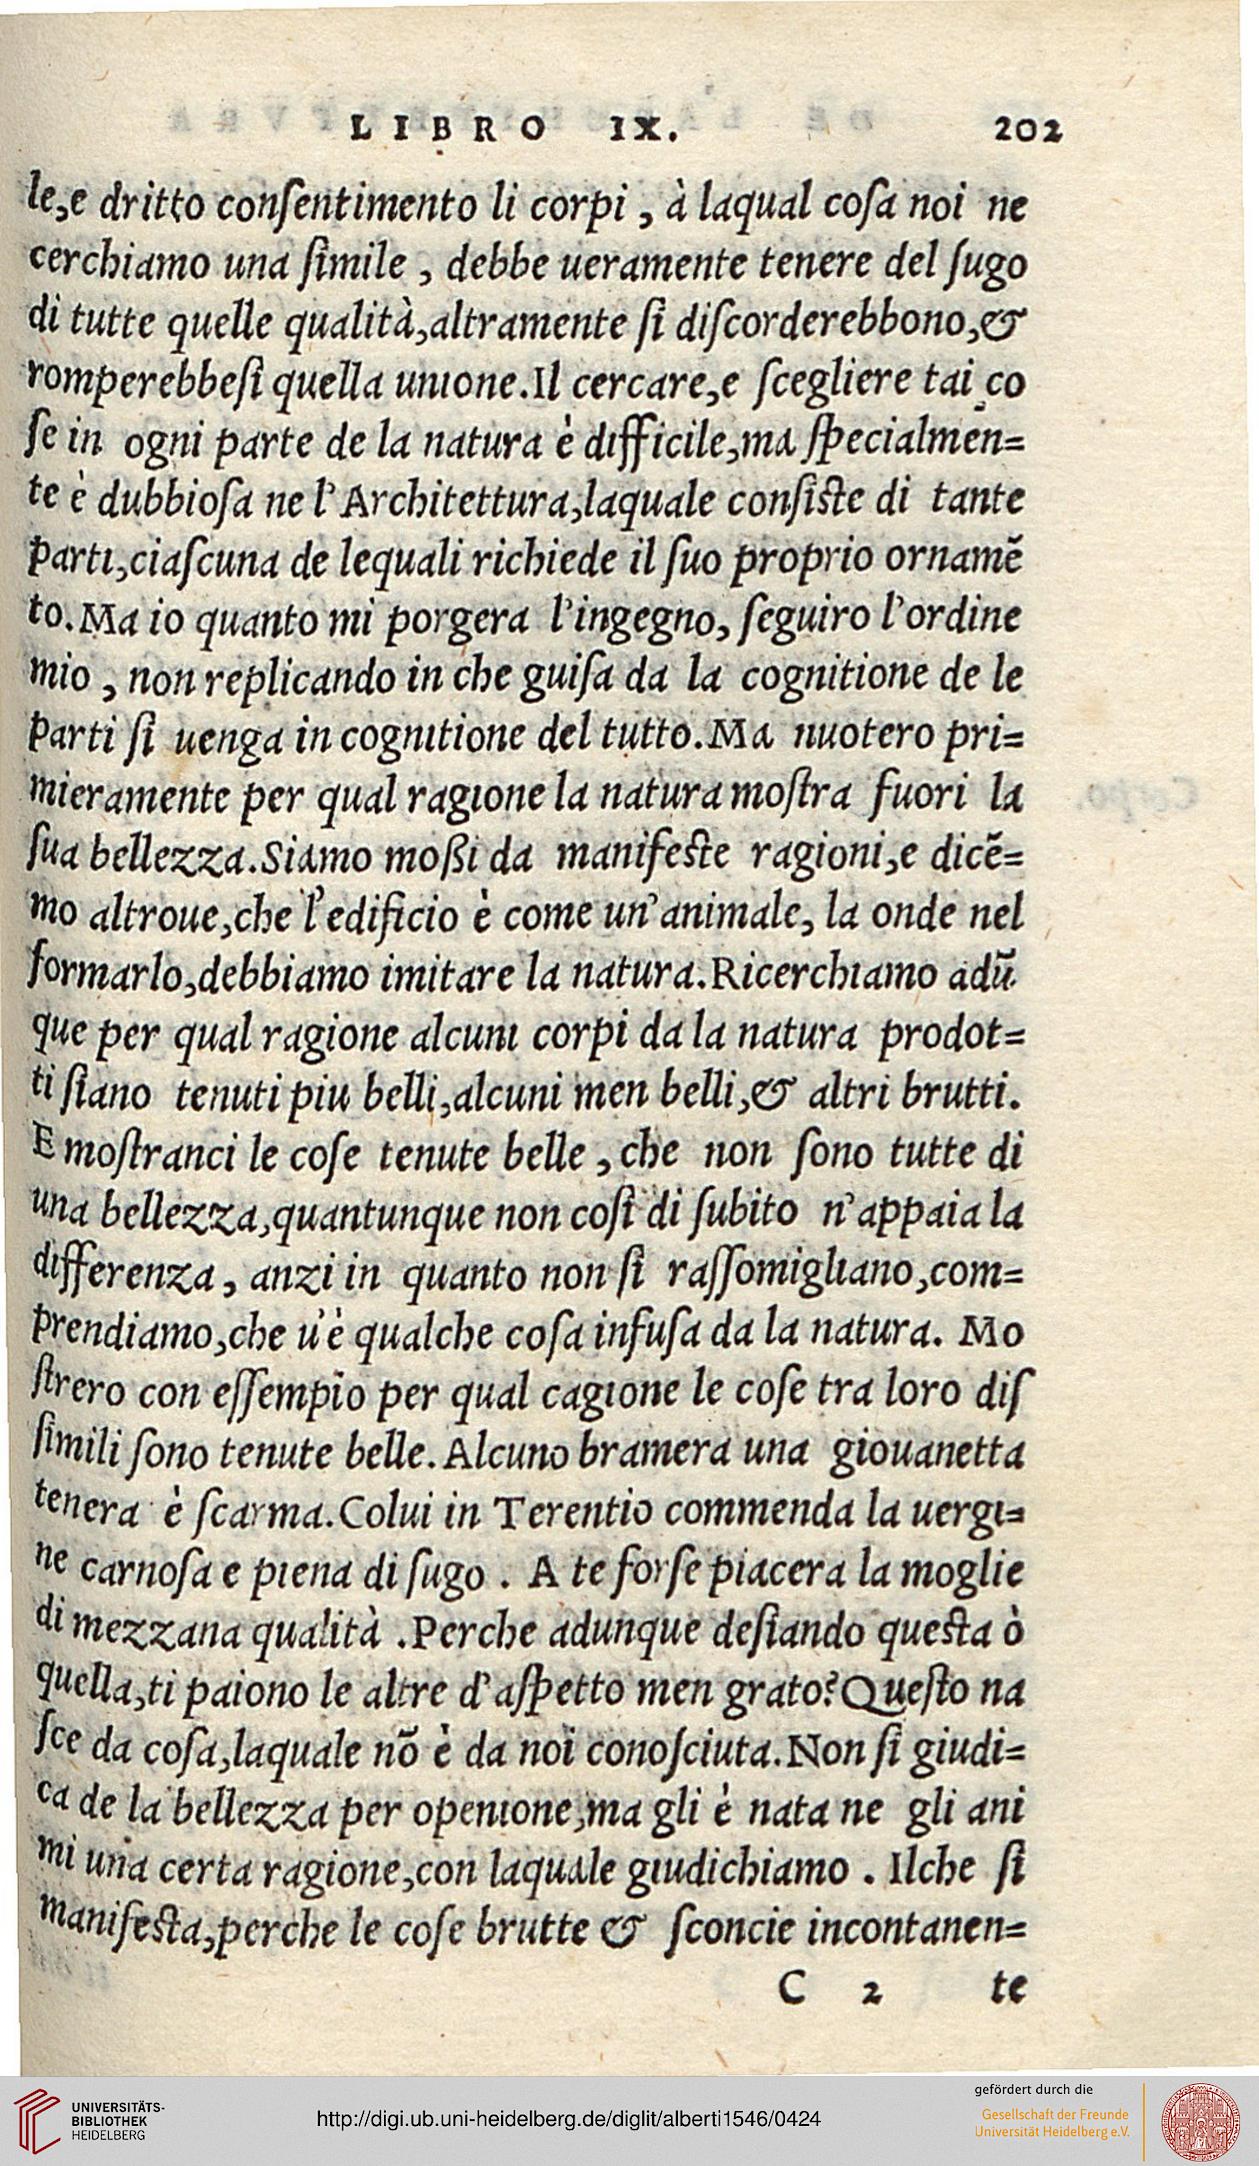 LIBRO IX. 202
le,e dritto conſentimento li corpi , à laqual coſa noi ne
cerchiamo una ſimile , debbe ueramente tenere del ſugo
di tutte quelle qualità,altramente ſi diſcorderebbono,&
romperebbeſi quella unione.Il cercare,e ſcegliere tai co
ſe in ogni parte de la natura è difficile,ma ſpecialmen=
te è dubbioſa ne l'Architettura,laquale conſiſte di tante
parti,ciaſcuna de lequali richiede il ſuo proprio ornamẽ
to.Ma io quanto mi porgera l'ingegno, ſeguiro l'ordine
mio , non replicando in che guiſa da la cognitione de le
parti ſi uenga in cognitione del tutto.Ma nuotero pri=
mieramente per qual ragione la natura moſtra fuori la
ſua bellezza.Siamo moßi da manifeſte ragioni,e dicẽ=
mo altroue,che l'edificio è come un'animale, la onde nel
formarlo,debbiamo imitare la natura.Ricerchiamo adũ
que per qual ragione alcuni corpi da la natura prodot=
ti ſiano tenuti piu belli,alcuni men belli,& altri brutti.
E moſtranci le coſe tenute belle , che non ſono tutte di
una bellezza,quantunque non coſi di ſubito n'appaia la
differenza , anzi in quanto non ſi raſſomigliano,com=
prendiamo,che u'è qualche coſa infuſa da la natura. Mo
ſtrero con eſſempio per qual cagione le coſe tra loro diſ
ſimili ſono tenute belle.Alcuno bramera una giouanetta
tenera è ſcarma.Colui in Terentio commenda la uergi=
ne carnoſa e piena di ſugo . A te forſe piacera la moglie
di mezzana qualità .Perche adunque deſiando queſta ò
quella,ti paiono le altre d'aſpetto men grato?Queſto na
ſce da coſa,laquale nõ è da noi conoſciuta.Non ſi giudi=
ca de la bellezza per openione,ma gli è nata ne gli ani
mi una certa ragione,con laquale giudichiamo . Ilche ſi
manifeſta,perche le coſe brutte & ſconcie incontanen=
C 2 te
UNIVERSITÄTS-
BIBLIOTHEK
HEIDELBERG
http://digi.ub.uni-heidelberg.de/diglit/alberti1546/0424
gefördert durch die
Gesellschaft der Freunde
Universität Heidelberg e.V.